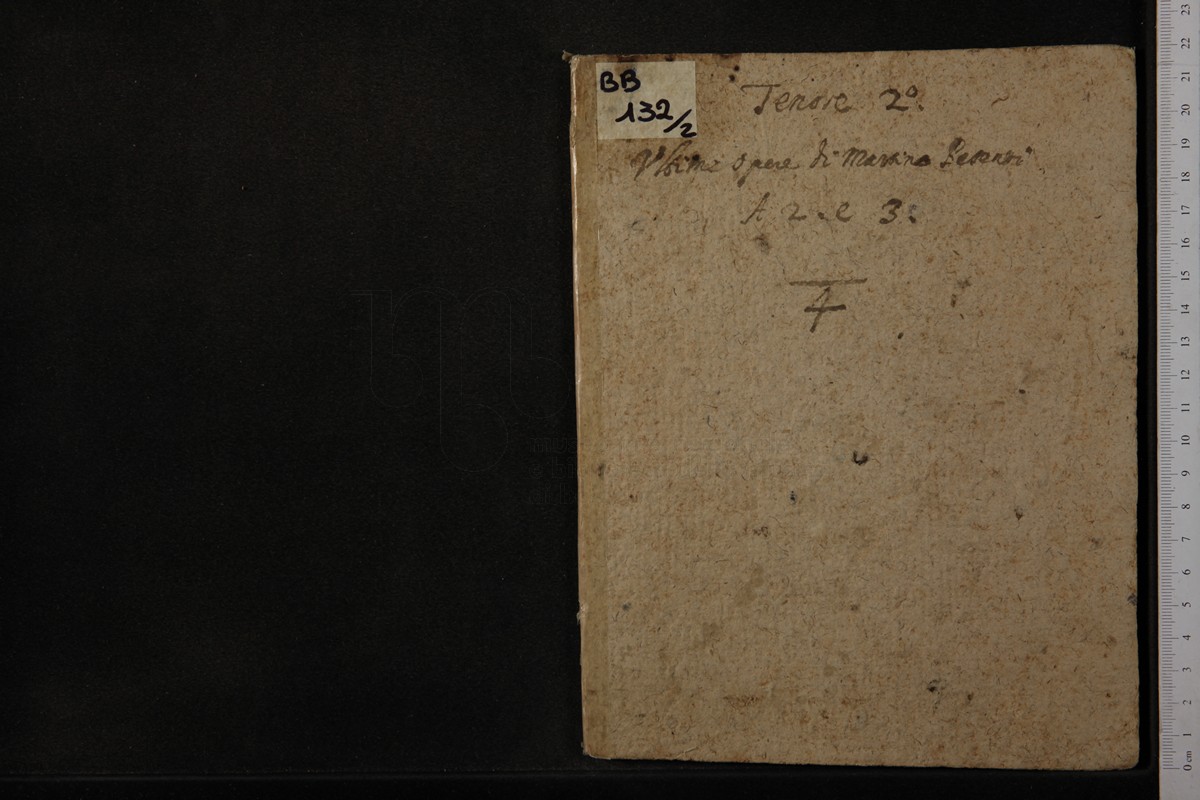 BB
132/2
Tenore 2º.
Vltime opere di Martino Pesenti
A 2. e 3.
4
0 cm 1 2 3 4 5 6 7 8 9 10 11 12 13 14 15 16 17 18 19 20 21 22 23